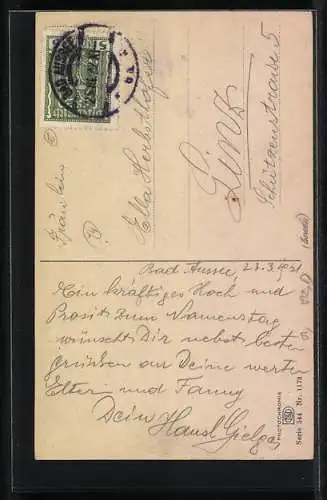 Fräulein
Ella Herbsthofer
Linz
Schützenstrasse 5
Bad Aussee, 23.3.
Ein kräftiges Hoch und
Prosit zum Namenstag
wünscht Dir nebst besten
grüßen an Deine werten
Eltern und Fanny
Dein Hansl
PHOTOCHROMIE
Serie 344 Nr. 1172